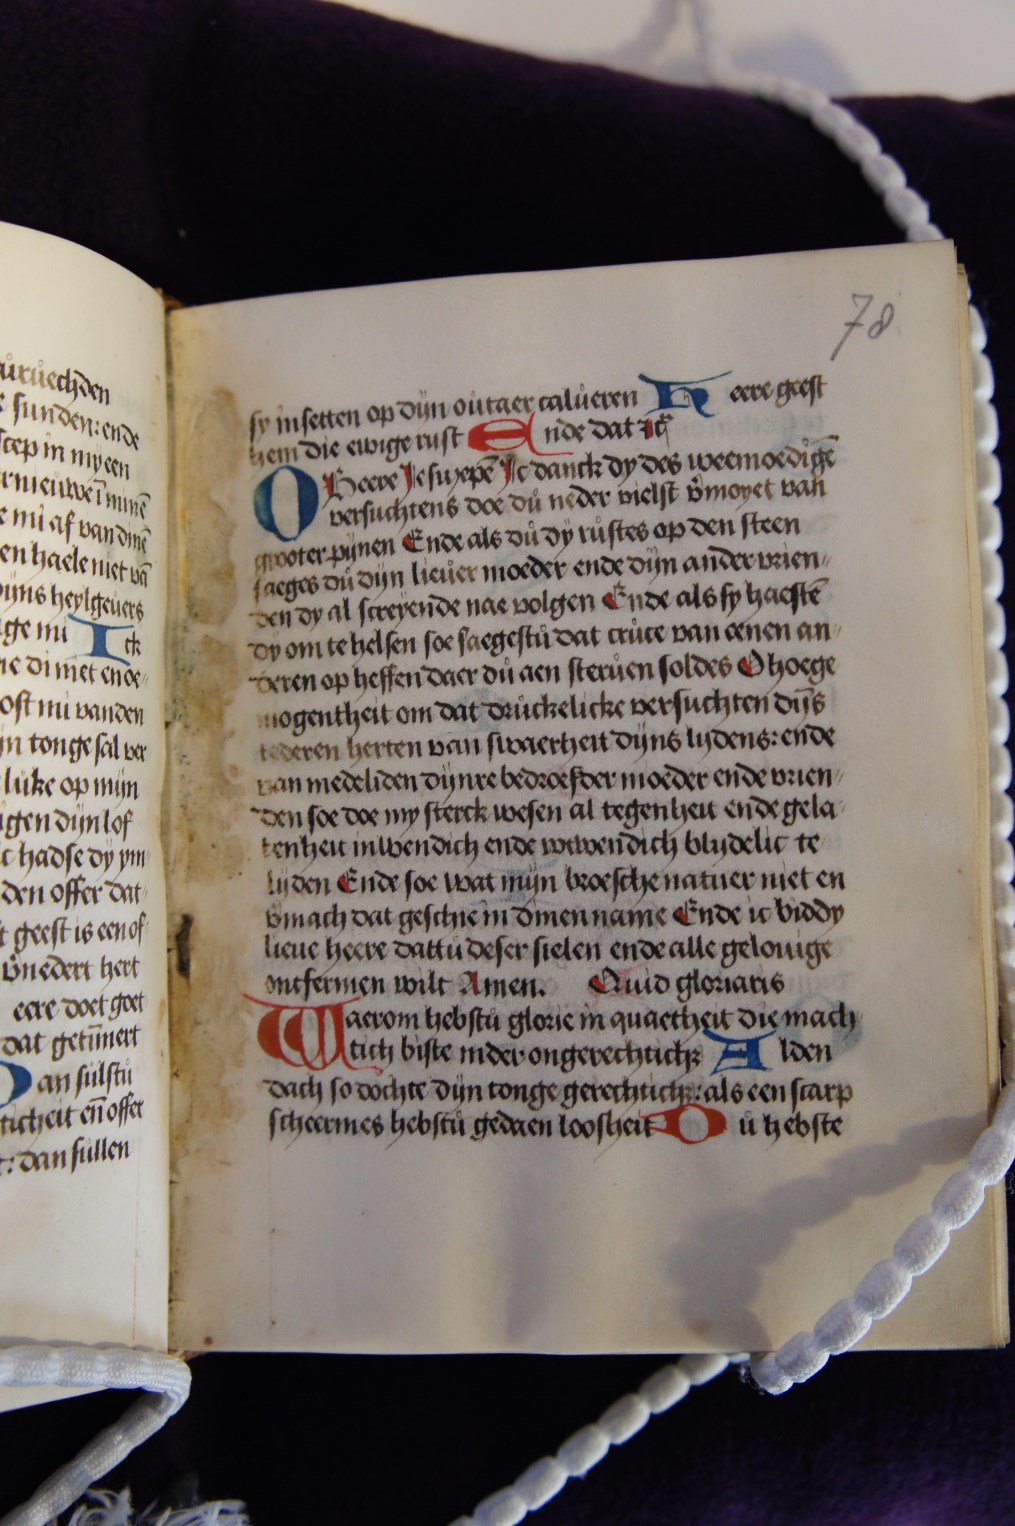 uruechden
sunden: ende
scep in my een
rnieuwe īmīnē
e mi af van dinē
en haele niet vā
dijns heylgeuers
ge mi Ick
ne di met en oe-
oft mi vanden
n tonge sal ver
luke op mijn
igen dijn lof
t hadse dy ym
den offer dat-
t geest is een of
vnedert hert
eere doet goet
dat getīmert
an sulstu
ticheit en̄ offer
t: dan sullen
78
sy insetten op dijn outaer calueren Heere geest
hem die ewige rust Ende dat ic
O Heere Jesu xp̄e Ic danck dy des weemoedigē
versuchtens doe dů neder vielst v̄moyet van
grooter pijnen Ende als dů dy růstes op den steen
saeges dů dijn lieuer moeder ende dijn ander vrien-
den dy al screyende nae volgen Ende als sy haestē
dy om te helsen soe saegestů dat crůce van eenen an-
deren op heffen daer dů aen steruen soldes O hoege
mogentheit om dat drůckelicke versuchten dijns
tederen herten van swaerheit dijns lydens: ende
van medeliden dijnre bedroefder moeder ende vrien-
den soe doe my sterck wesen al tegenheit ende gela-
tenheit inwendich ende wtwendich blydelic te
lijden Ende soe wat mijn broesche natuer niet en
v̄mach dat geschie in dinen name Ende ic biddy
lieue heere dattu deser sielen ende alle gelouige
ontfermen wilt Amen. Quid gloriaris
Waerom hebstů glorie in quaetheit die mach
tich biste in der ongerechticht̄ Alden
dach so dochte dijn tonge gerechticht̄: als een scarp
scheermes hebstů gedaen loosheit Dů hebste